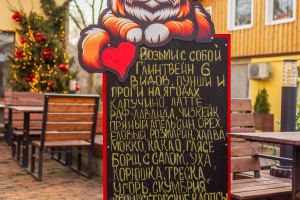 Возьми с собой
глинтвейн 6
видов, пунши и
гроги на ягодах
капучино, латте
раф-лаванда, чизкейк
пряный апельсин, орех
еловый розмарин, халва
мокко, какао, глясе
борщ с салом, уха
корюшка, треска,
угорь, скумбрия